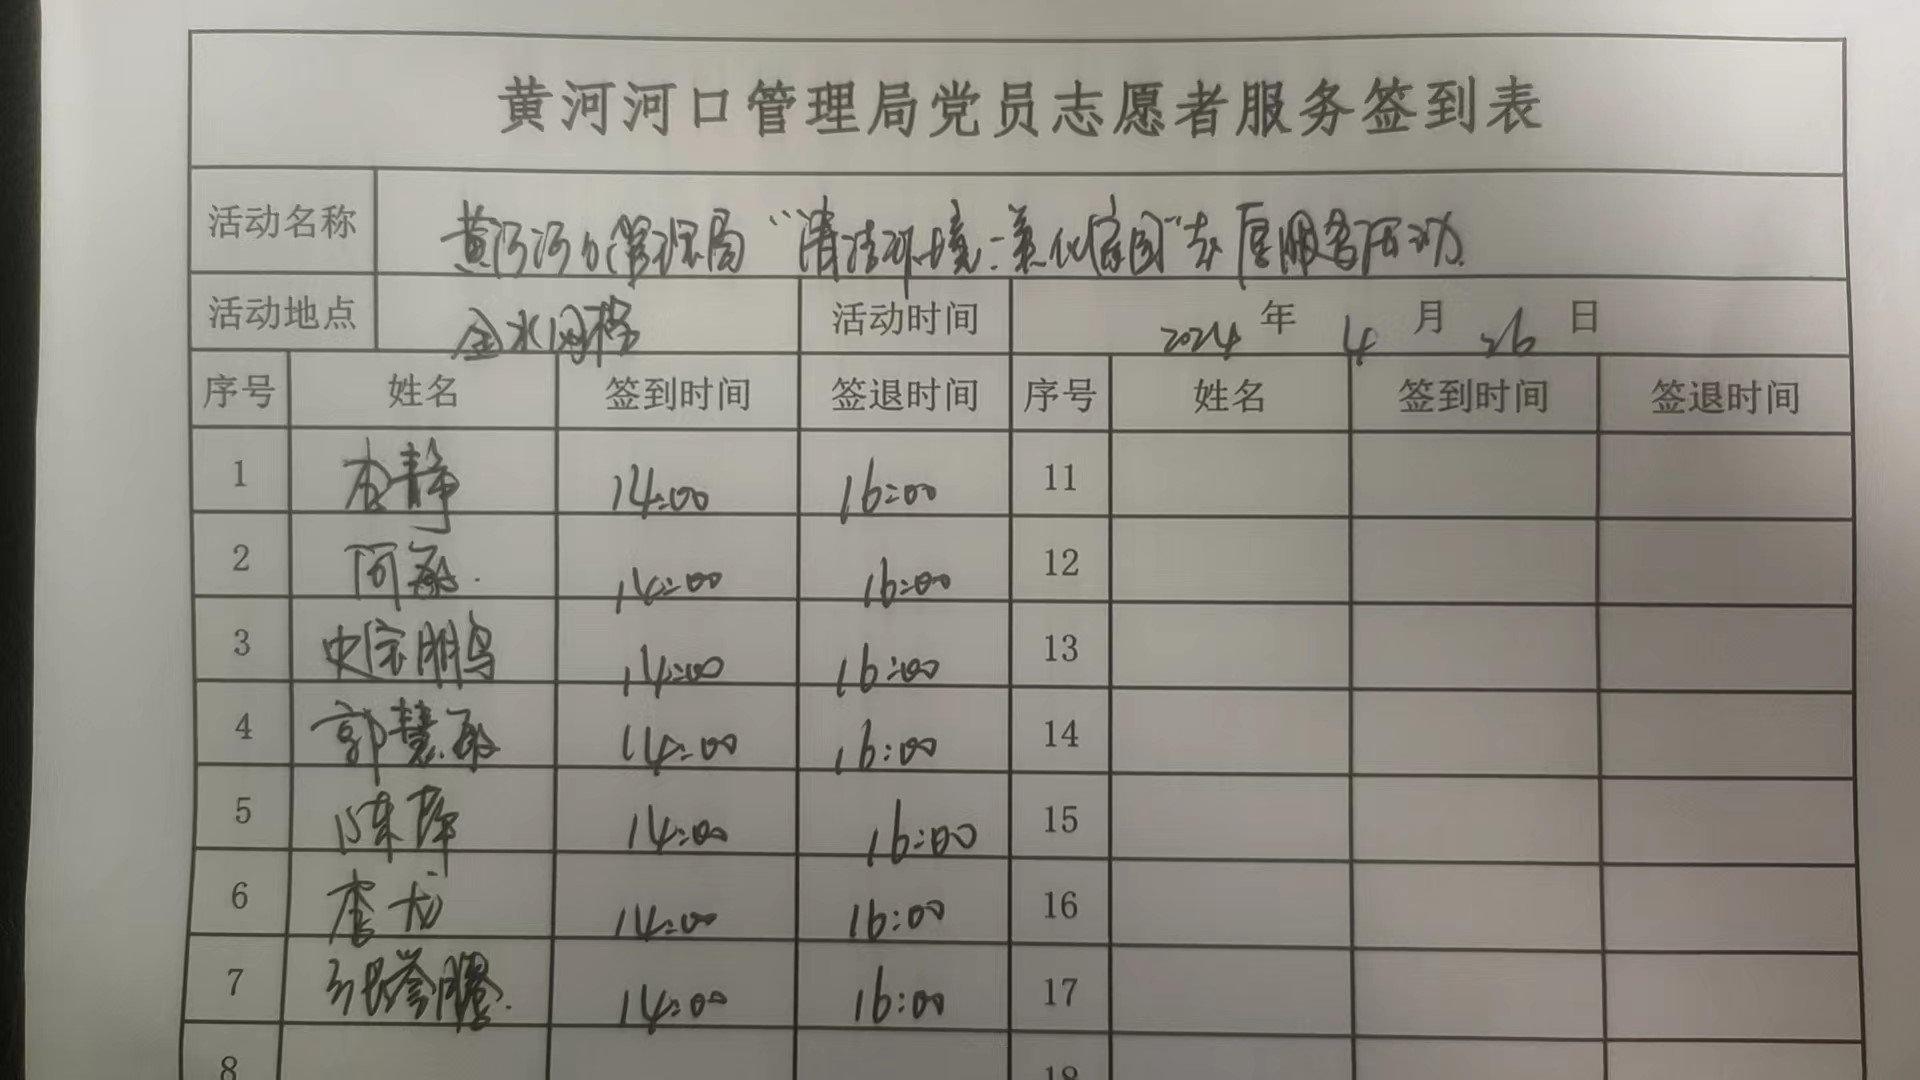 黄河河口管理局党员志愿者服务签到表
活动名称 黄河河口管理局“清洁环境、美化家园”志愿服务活动
活动地点 金水网格 活动时间 2024年4月26日
序号 姓名 签到时间 签退时间 序号 姓名 签到时间 签退时间
1 李静 14:00 16:00 11
2 何敏 14:00 16:00 12
3 史宗鹏 14:00 16:00 13
4 郭慧敏 14:00 16:00 14
5 陈 14:00 16:00 15
6 李龙 14:00 16:00 16
7 张誉腾 14:00 16:00 17
8 18